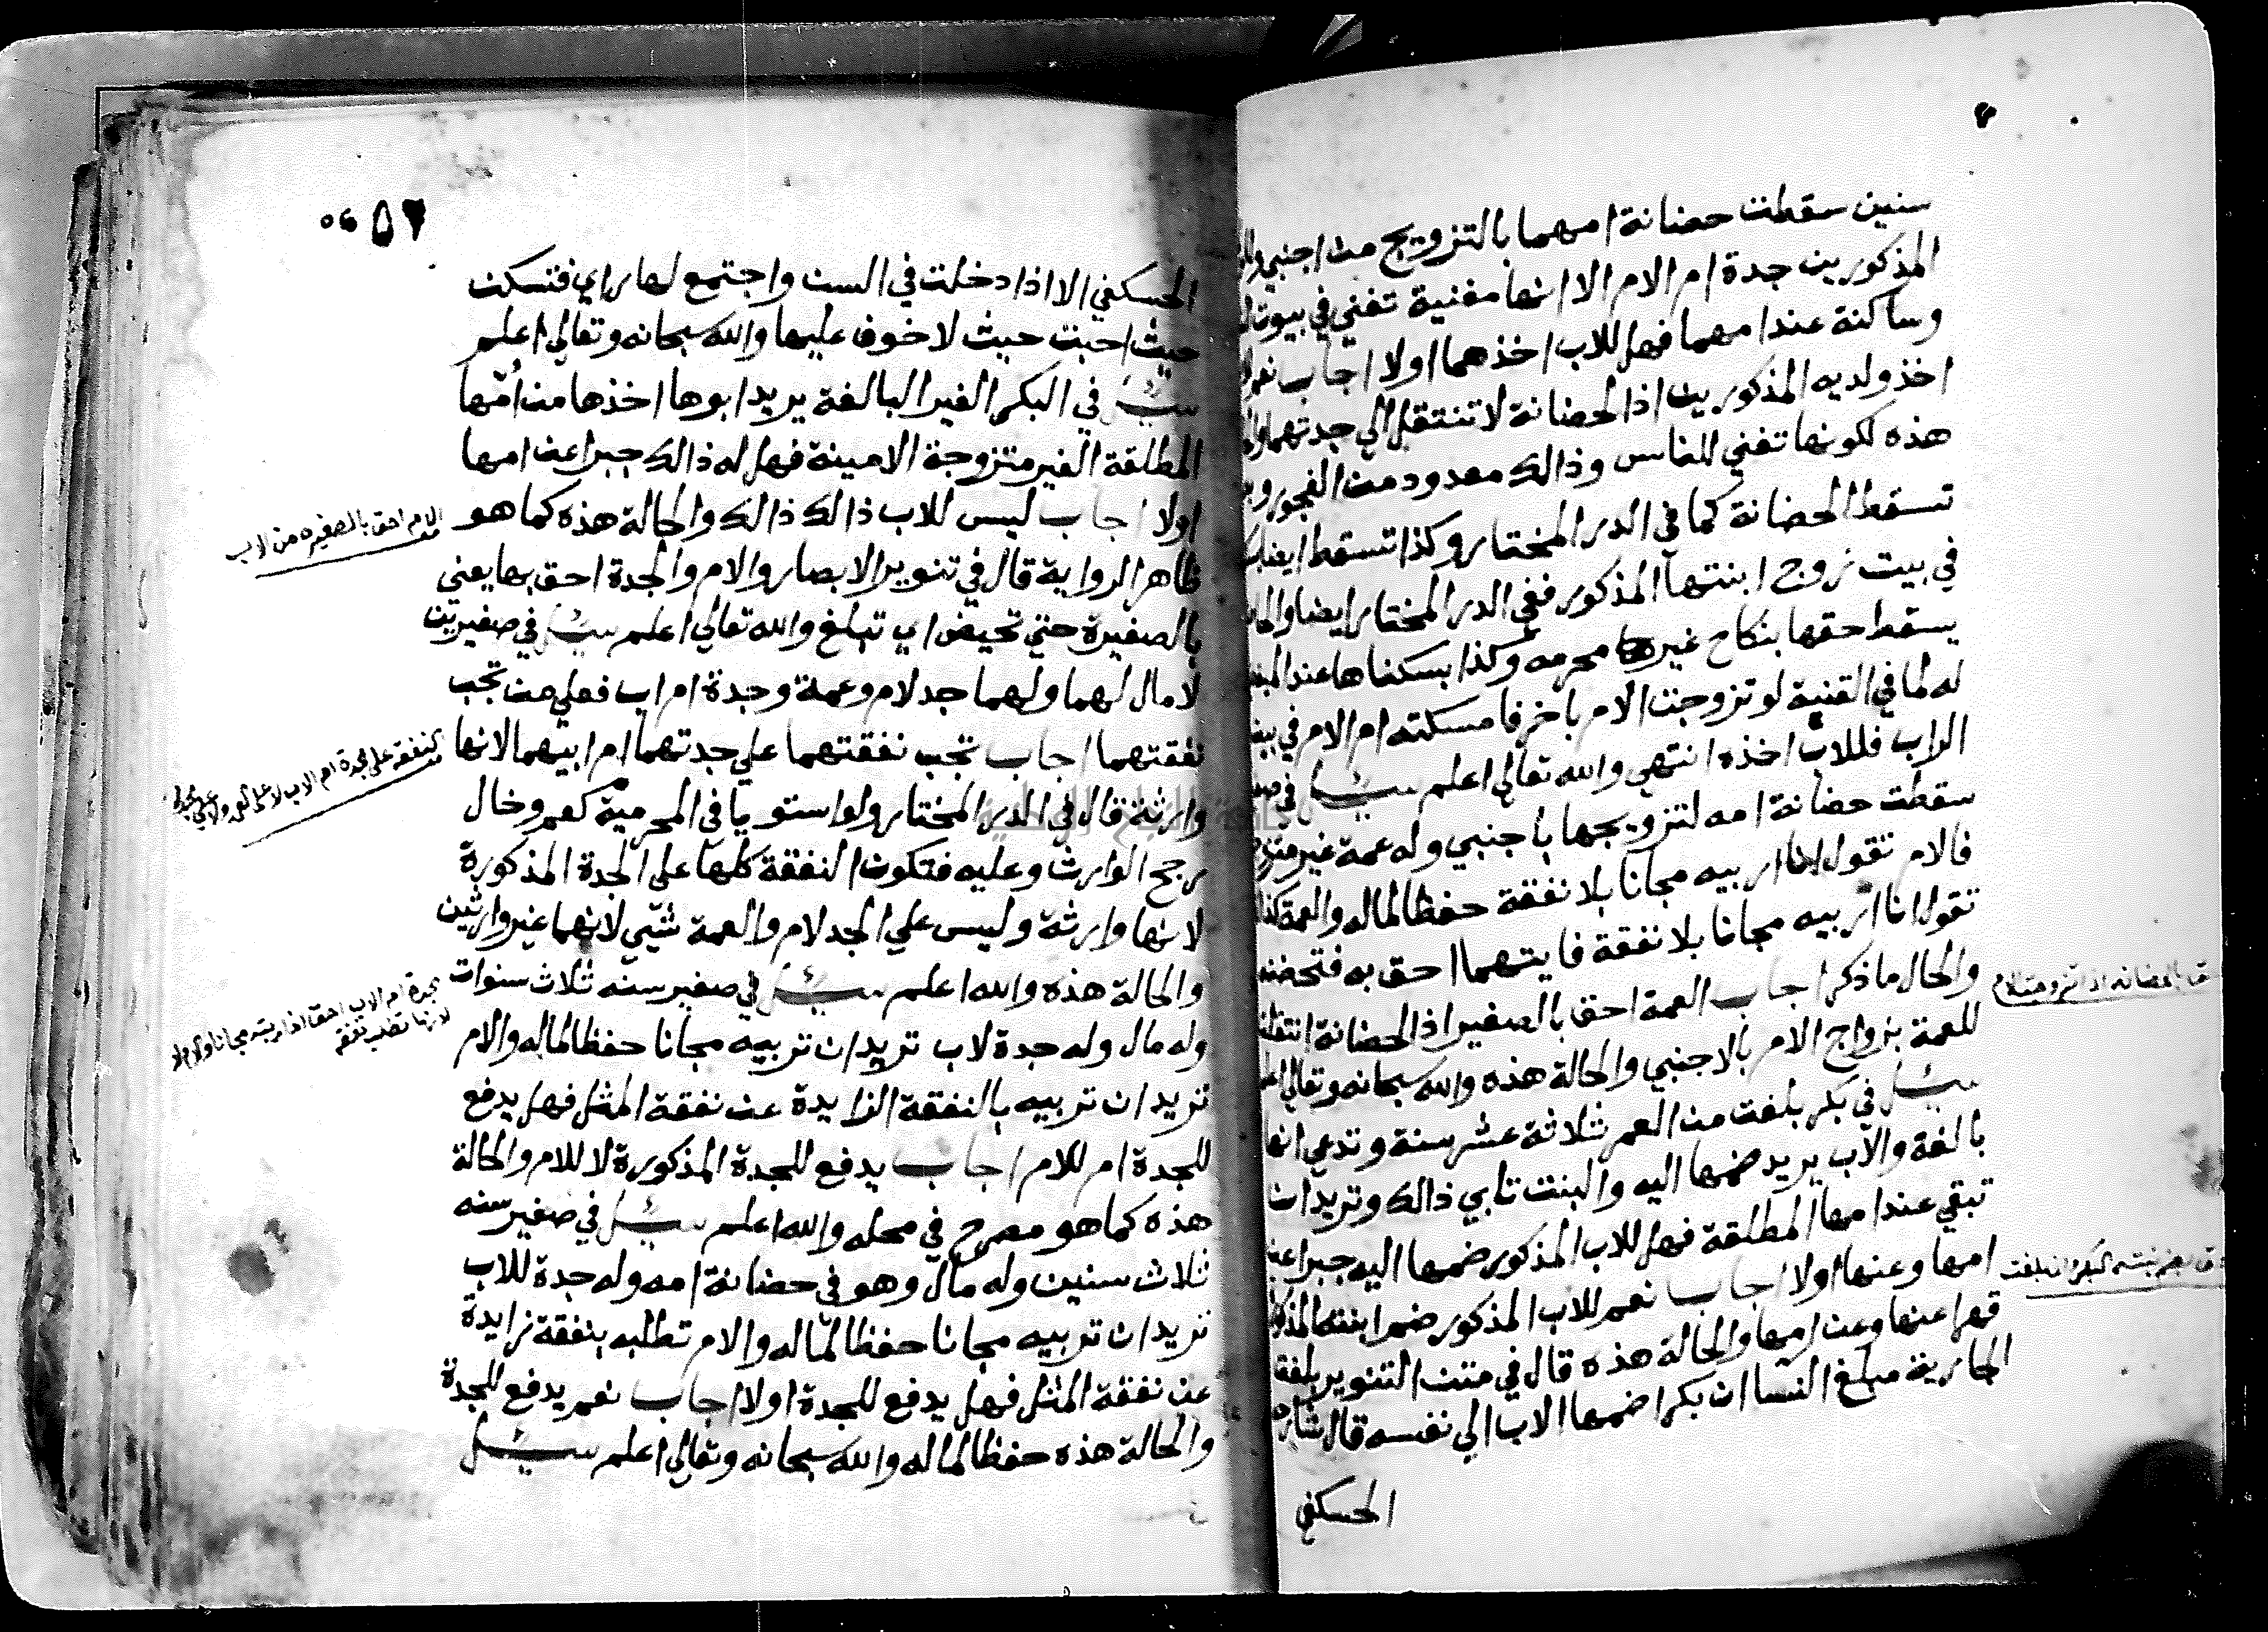 سنين سقطت حضانة امهما بالتزويج من اجنبي
المذكورين جدة ام الام الا انها مغنية تغني في بيوت
وساكنة عند امهما فهل للاب اخذهما اولا اجاب نعم
اخذ ولديه المذكورين اذ الحضانة لا تنتقل الي جدتهما
هذه لكونها تغني للناس وذالك معدود من الفجور
تسقط الحضانة كما في الدر المختار وكذا تسقط ايضا
في بيت زوج ابنتها المذكور ففي الدر المختار ايضا
يسقط حقها بنكاح غير محرمه وكذا بسكناها عند
له لما في القنية لو تزوجت الام باخر فامسكته ام الام في
الراب فللاب اخذه انتهي والله تعالي اعلم سئل في
سقطت حضانة امه لتزويجها باجنبي وله عمة غير
فالام تقول انا اربيه مجانا بلا نفقة حفظا لماله والعمة
تقول انا اربيه مجانا بلا نفقة فايتهما احق به
والحال ما ذكر اجاب العمة احق بالصغير اذ الحضانة
للعمة بزواج الام بالاجنبي والحالة هذه والله سبحانه وتعالي
سئل في بكر بلغت من العمر ثلاثة عشر سنة وتدعي انها
بالغة والاب يريد ضمها اليه والبنت تابي ذالك وتريد ان
تبقي عند امها المطلقة فهل للاب المذكور ضمها اليه جبرا عن
امها وعنها اولا اجاب نعم للاب المذكور ضم ابنته
قهرا عنها وعن امها والحالة هذه قال في متن التنوير بلغة
الجارية مبلغ النسا ان بكرا ضمها الاب الي نفسه قال
الحسكفي
٥٢
الحسكفي الا اذا دخلت في السن واجتمع لها راي فتسكن
حيث احبت حيث لا خوف عليها والله سبحانه وتعالي اعلم
سئل في البكر الغير البالغة يريد ابوها اخذها من امها
المطلقة الغير متزوجة الامينة فهل له ذالك جبرا عن امها
اولا اجاب ليس للاب ذالك ذالك والحالة هذه كما هو
الام احق بالصغيره من الاب
ظاهر الرواية قال في تنوير الابصار والام والجدة احق بها يعني
بالصغيرة حتي تحيض اي تبلغ والله تعالي اعلم سئل في صغيرين
لا مال لهما ولهما جد لام وعمة وجدة ام اب فعلي من تجب
نفقتهما اجاب تجب نفقتهما علي جدتهما ام ابيهما لانها
وارثة قال في الدر المختار ولو استويا في المحرمية كعم وخال
رجح الوارث وعليه فتكون النفقة كلها علي الجدة المذكورة
لانها وارثة وليس علي الجد لام والعمة شئي لانهما غير وارثين
والحالة هذه والله اعلم سئل في صغير سنه ثلاث سنوات
وله مال وله جدة لاب تريد ان تربيه مجانا حفظا لماله والام
تريد ان تربيه بالنفقة الزايدة عن نفقة المثل فهل يدفع
للجدة ام للام اجاب يدفع للجدة المذكورة لا للام والحالة
هذه كما هو مصرح في محله والله اعلم سئل في صغير سنه
ثلاث سنين وله مال وهو في حضانة امه وله جدة للاب
تريد ان تربيه مجانا حفظا لماله والام تطلبه بنفقة زايدة
عن نفقة المثل فهل يدفع للجدة اولا اجاب نعم يدفع للجدة
والحالة هذه حفظا لماله والله سبحانه وتعالي اعلم سئل